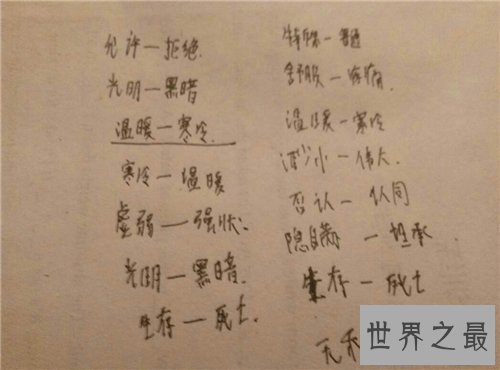 允许—拒绝
光明—黑暗
温暖—寒冷
寒冷—温暖
虚弱—强壮
光明—黑暗
生存—死亡
特殊—普通
舒服—疼痛
温暖—寒冷
渺小—伟大
否认—认同
隐瞒—坦承
生存—死亡
世界之最